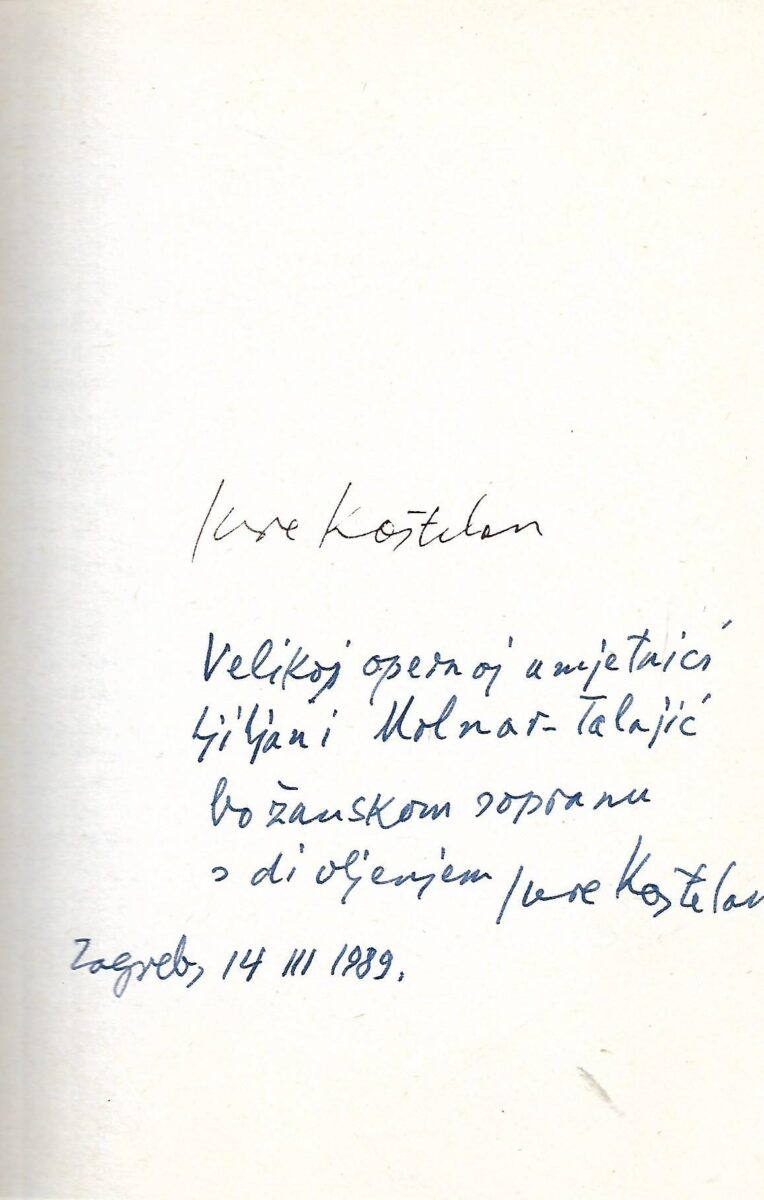 Jure Kaštelan
Velikoj opernoj umjetnici
Ljiljani Molnar-Talajić
božanskom sopranu
s divljenjem Jure Kaštelan
Zagreb, 14 III 1989.